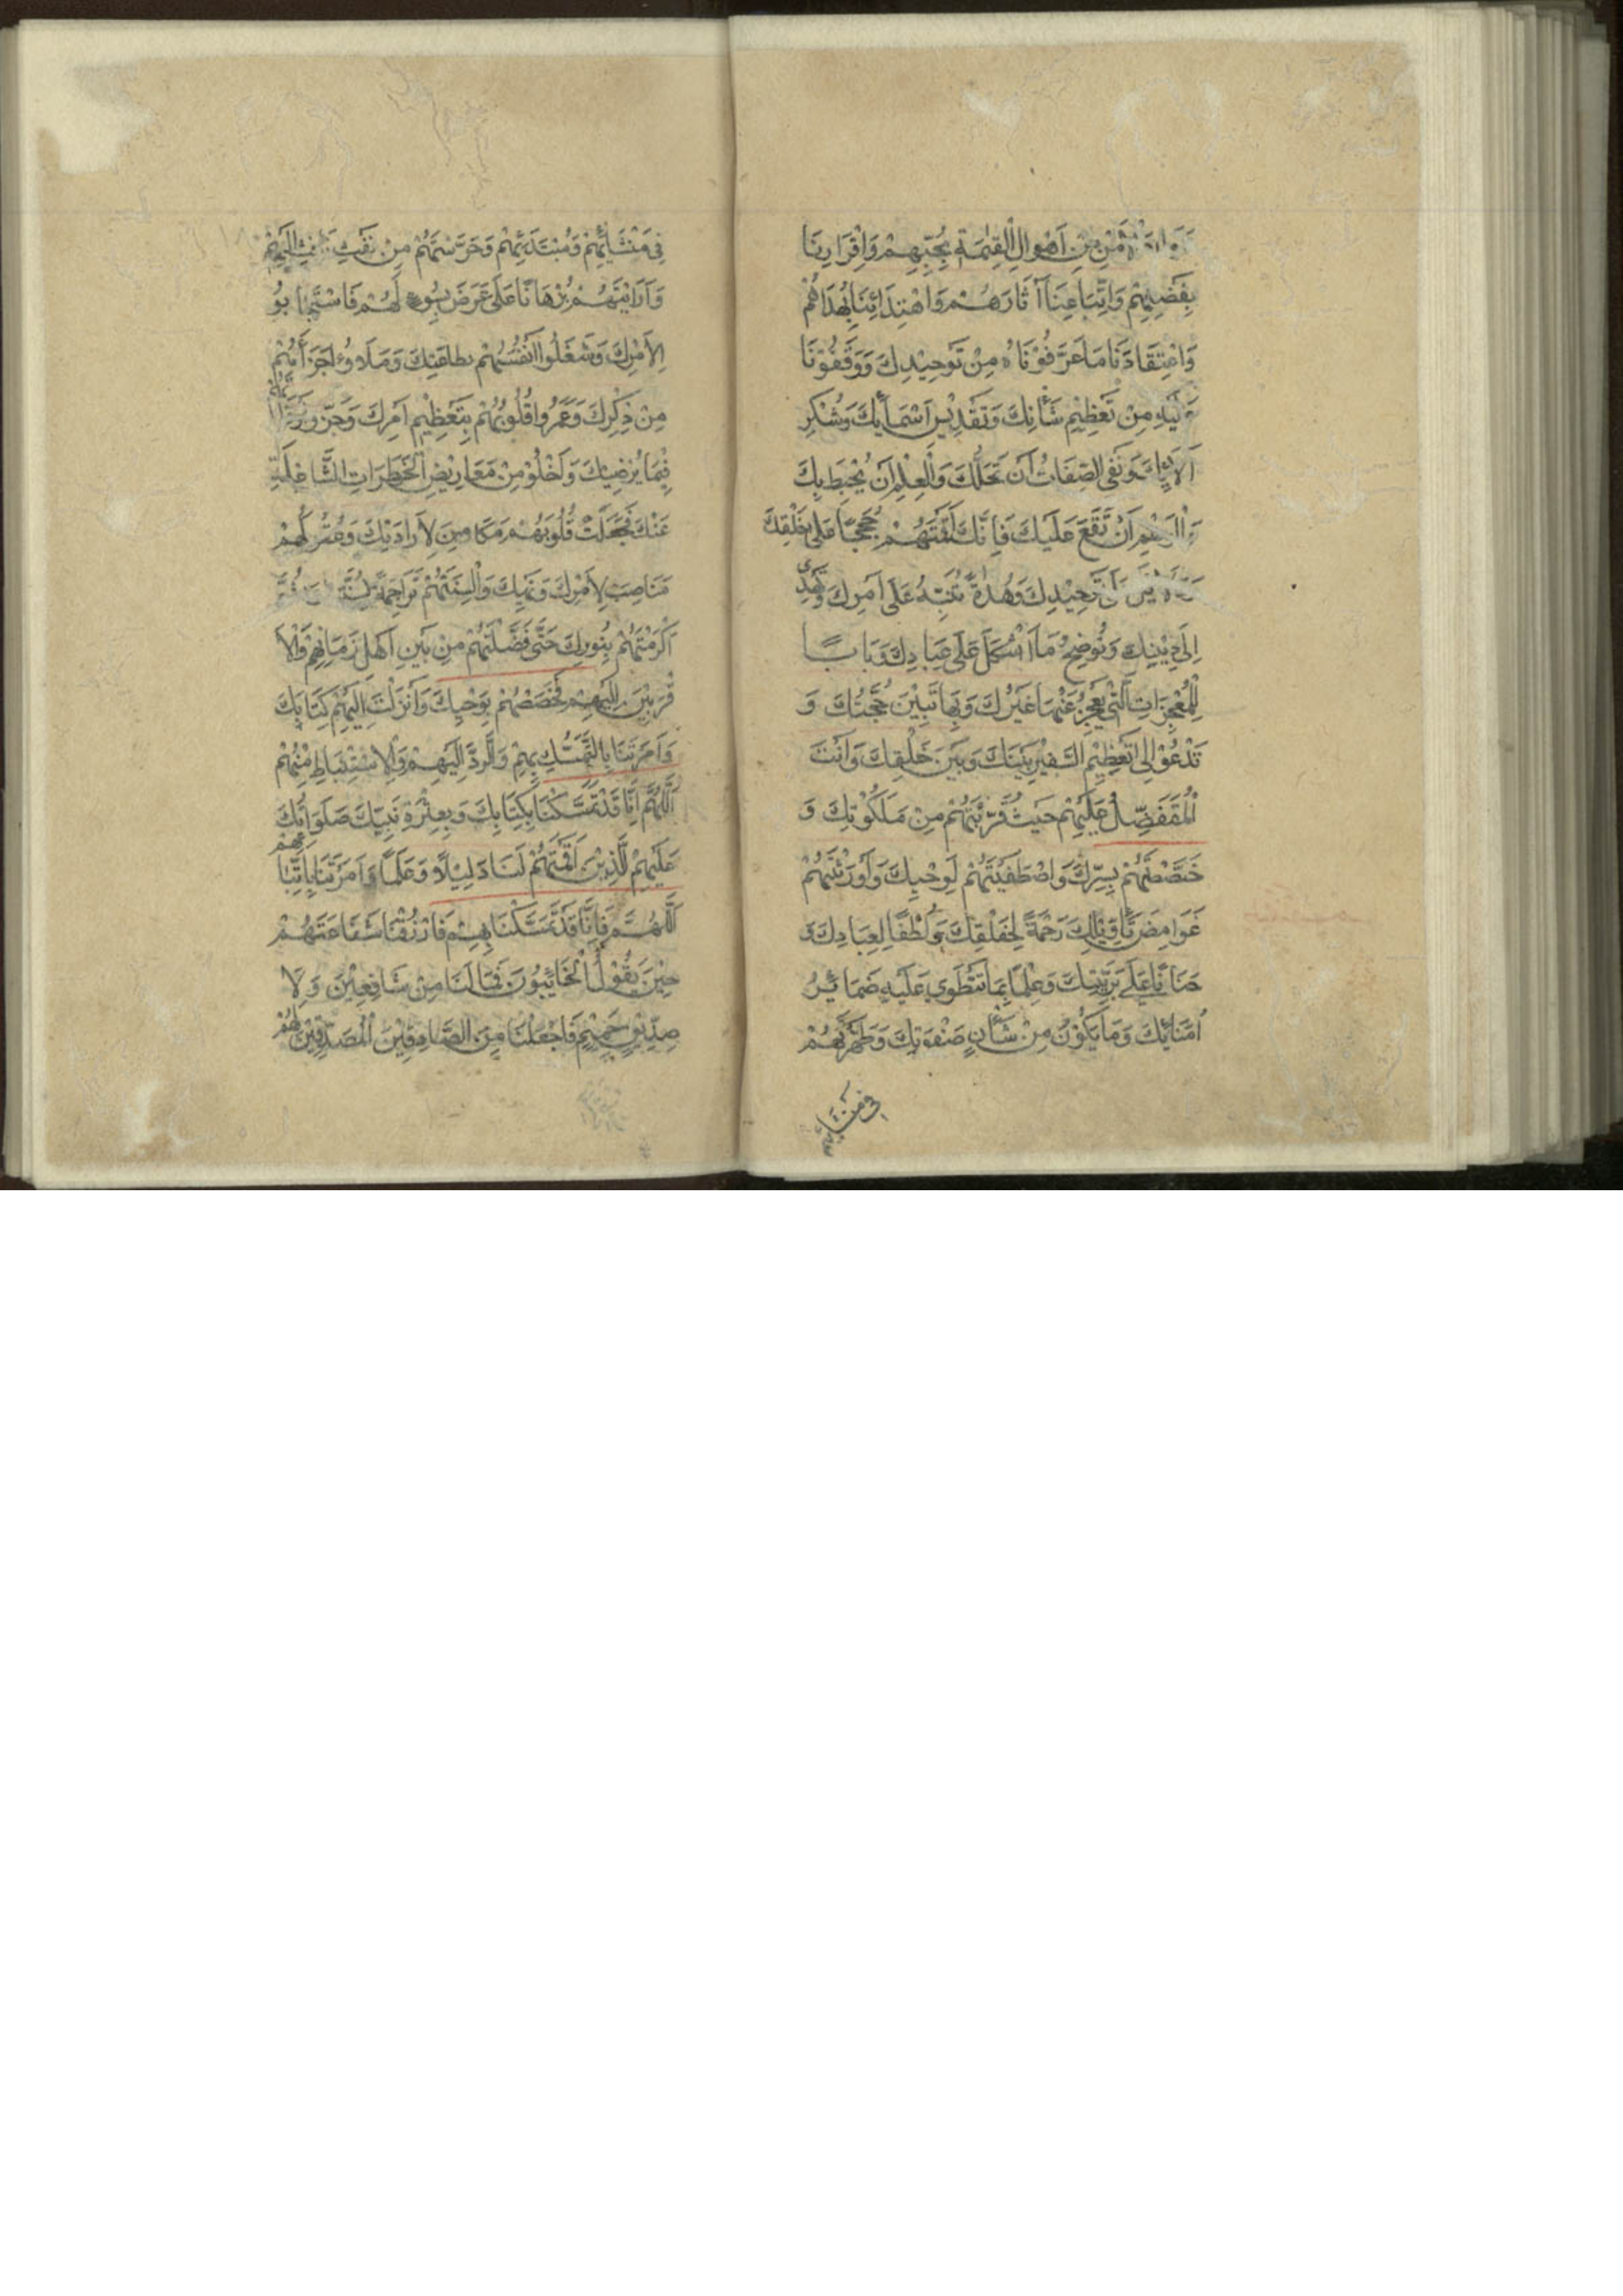 مِنْ اَهْوٰالِ الْقِيٰمَةِ بِحُبِّهِمْ وَاِقْرَارِنَا
بِفَضْلِهِمْ وَاتِّبَاعِنَا آثَارَهُمْ وَاهْتِدَائِنَا بِهُدَاهُمْ
وَاعْتِقَادَنَا مَا عَرَّفُوْنَاهُ مِنْ تَوحِيْدِكَ وَوَقَفُوْنَا
عَلَيْهِ مِنْ تَعْظِيْمِ شَأْنِكَ وَتَقْدِيْسِ اَسْمَآئِكَ وَشُكْرِ
اٰلَائِكَ وَنَفْيِ الصِّفَاتُ اَنْ تَحُلَّكَ وَالْعِلْمِ اَنْ يُحْيطَ بِكَ
اَنْ تَقَعَ عَلَيْكَ فَاِنَّكَ اَقَمْتَهُمْ حُجَجًا عَلٰى خَلْقِكَ
تَوْحِيْدِكَ وَهُدَاةً تُنَبِّهُ عَلٰى اَمْرِكَ وَتَهْدِي
اِلٰى دِيْنِكَ وَتُوضِحُ مَا اَشْكَلَ عَلٰى عِبَادِكَ وَبَابًا
لِلْمُعْجِزَاتِ الَّتِي يَعْجِزُ عَنْهَا غَيْرُكَ وَبِهَا تَبِيْنُ حُجَّتُكَ وَ
تَدْعُوْ اِلٰى تَعْظِيْمِ السَّفِيْرِ بَيْنَكَ وَبَيْنَ خَلْقِكَ وَاَنْتَ
الْمُتَفَضِّلُ عَلَيْهِمْ حَيْثُ قَرَّبْتَهُمْ مِنْ مَلَكُوْتِكَ وَ
خَصَصْتَهُمْ بِسِرِّكَ وَاصْطَفَيْتَهُمْ لِوَحْيِكَ وَاَوْرَثْتَهُمْ
غَوَامِضَ تَاوِيْلِكَ رَحْمَةً لِخَلْقِكَ وَلُطْفًا لِعِبَادِكَ وَ
حَنَانًا عَلٰى بَرِيَّتِكَ وَعِلْمًا بِمَا تَنْطَوِي عَلَيْهِ ضَمَائِرُ
اُمَنَائِكَ وَمَا يَكُوْنُ مِنْ شَأْنِ صَفْوَتِكَ وَطَهَّرْتَهُمْ
في منشا
فِي مَنْشَائِهِمْ وَمُبْتَدَئِهِمْ وَحَرَسْتَهُمْ مِنْ نَفْثِ نَافِثٍ اِلَيْهِمْ
وَاَرَايْتَهُمْ بُرْهَانًا عَلٰى عَرَضَ بِسُوءٍ لَهُمْ فَاسْتَجَابُوْ
لِاَمْرِكَ وَشَغَلُوا اَنْفُسَهُمْ بِطَاعَتِكَ وَمَلَاوُا اَجْزَاءَهُمْ
مِنْ ذِكْرِكَ وَعَمَرُوا قُلُوْبَهُمْ بِتَعْظِيْمِ اَمْرِكَ وَجَزَّوُا
فِيْمَا يُرْضِيْكَ وَاَخْلُوْ مِنْ مَعَارِيْضِ الْخَطَرَاتِ الشَّاغِلَةِ
عَنْكَ فَجَعَلْتَ قُلُوْبَهُمْ مَكَامِنَ لِاِرَادَتِكَ وَعُقُوْلَهُمْ
مَنَاصِبَ لِاَمْرِكَ وَنَهْيِكَ وَاَلْسِنَتَهُمْ تَرَاجِمَةً لِسُنَّتِكَ
اَكْرَمْتَهُمْ بِنُورِكَ حَتّٰى فَضَّلْتَهُمْ مِنْ بَيْنِ اَهْلِ زَمَانِهِمْ وَالْاَ
قْرَبِيْنَ اِلَيْهِمْ فَخَصَصْتَهُمْ بِوَحْيِكَ وَاَنْزَلْتَ اِلَيْهِمْ كِتَابَكَ
وَاَمَرْتَنَا بِالتَّمَسُّكِ بِهِمْ وَالرَّدِّ اِلَيْهِمْ وَالْاِسْتِنْبَاطِ مِنْهُمْ
اَللّٰهُمَّ اِنَّا قَدْ تَمَسَّكْنَا بِكِتَابِكَ وَبِعِتْرَةِ نَبِيِّكَ صَلَوَاتُكَ
عَلَيْهِمْ الَّذِيْنَ اَقَمْتَهُمْ لَنَا دَلِيْلًا وَعَلَمًا وَاَمَرْتَنَا بِاتِّبَاعِهِمْ
اَللّٰهُمَّ فَاِنَّا قَدْ تَمَسَّكْنَا بِهِمْ فَارْزُقْنَا شَفَاعَتَهُمْ
حِيْنَ يَقُوْلُ الْخَائِبُونَ فَمَا لَنَا مِنْ شَافِعِيْنَ وَلَا
صِدِّيْقٍ حَمِيْمٍ فَاجْعَلْنَا مِنَ الصَّادِقِيْنَ الْمُصَدِّقِيْنَ لَهُمْ